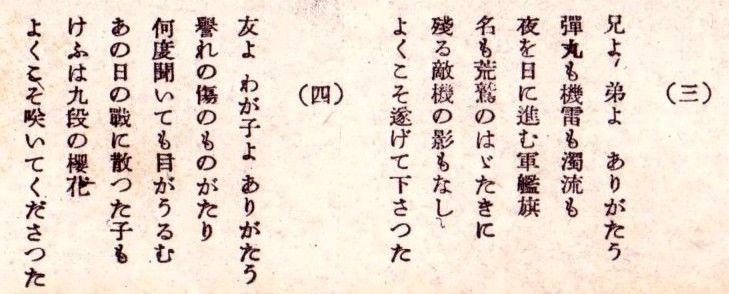 （三）
兄よ 弟よ ありがたう
彈丸も機雷も濁流も
夜を日に進む軍艦旗
名も荒鷲のはゞたきに
殘る敵機の影もなし
よくこそ遂げて下さつた
（四）
友よ わが子よ ありがたう
譽れの傷のものがたり
何度聞いても目がうるむ
あの日の戰に散つた子も
けふは九段の櫻花
よくこそ咲いてくださつた